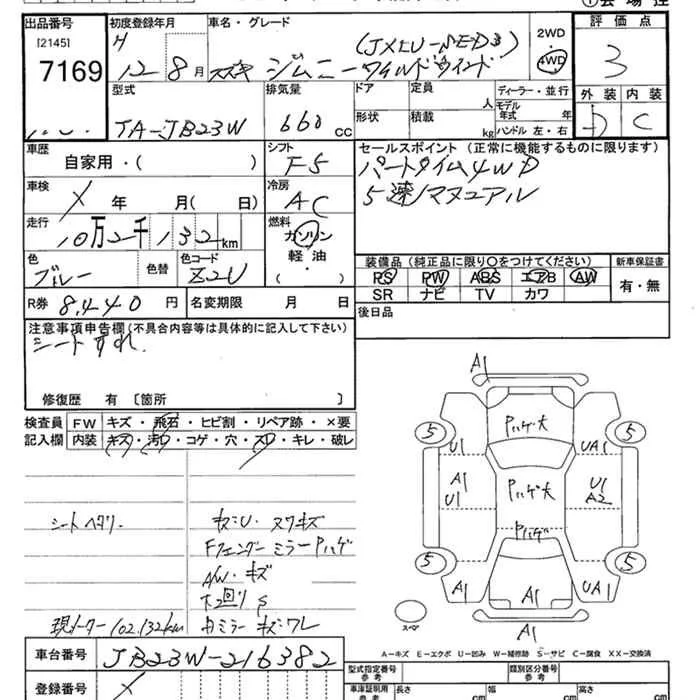 出品番号
[2145]
7169
初度登録年月
H 12 8月
車名・グレード
スズキ ジムニー ワイルドウインド
2WD
・
4WD
評価点
3
外装 内装
C
型式
TA-JB23W
排気量
660 CC
ドア
形状
定員
人
積載
kg
ディーラー・並行
モデル年式 年
ハンドル 左・右
車歴
自家用・( )
シフト
F5
セールスポイント(正常に機能するものに限ります)
パートタイム4WD
5速マニュアル
車検
年 月( 日)
冷房
AC
走行
10万2千132km
燃料
ガソリン
軽油
( )
色
ブルー
色替
色コード
Z2U
装備品(純正品に限り○をつけてください)
PS PW ABS エアB AW
SR ナビ TV カワ
新車保証書
有・無
R券 8,440 円
名変期限 月 日
後日品
注意事項申告欄(不具合内容等は具体的に記入して下さい)
シートすれ
修復歴 有〔箇所
検査員
記入欄
FW キズ・飛石・ヒビ割・リペア跡・×要
内装 キズ・汚レ・コゲ・穴・スレ・キレ・破レ
シートヘタリ
Fフェンダーミラー Pハゲ
A/W・キズ
下廻り S
現メーター102.132km
カミラー キズワレ
A1
Pハゲ大
5
5
U1
UA1
A1
U1
Pハゲ大
U1
A2
Pハゲ
5
5
A1
A1
UA1
A1
スペア
A-キズ E-エクボ U-凹み W-補修跡 S-サビ C-腐食 XX-交換済
車台番号 JB23W-216382
登録番号
型式指定番号
参考
類別区分番号
参考
車庫証明用
参考
長さ cm
幅 cm
高さ cm